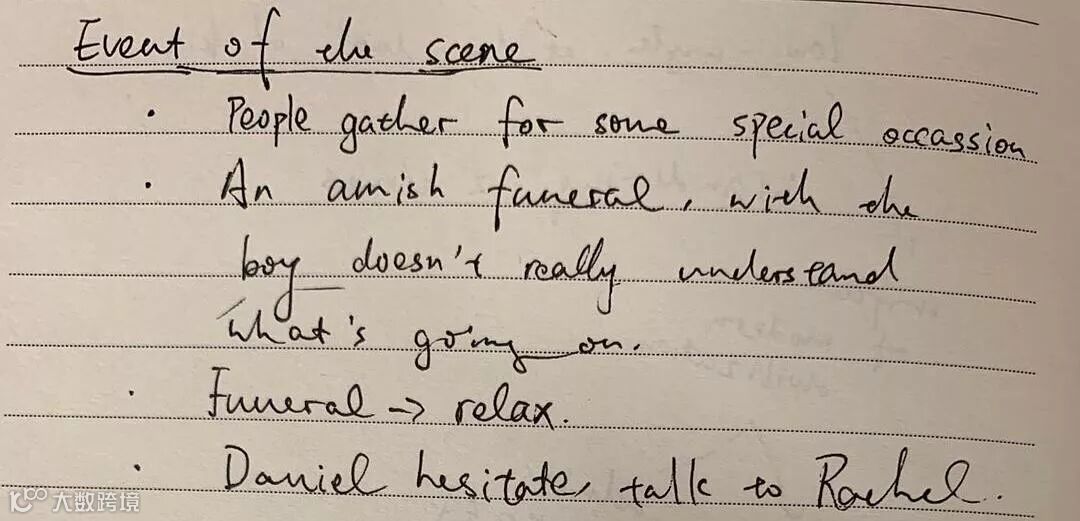 Event of the scene
· People gather for some special occassion
· An amish funeral, with the
boy doesn't really understand
what's going on.
· Funeral -> relax.
· Daniel hesitate, talk to Rachel.
大数跨境